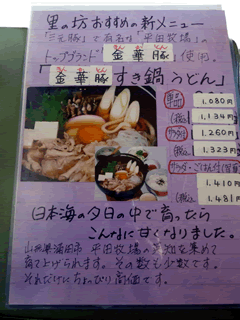 里の坊おすすめの新メニュー
「三元豚」で有名な「平田牧場」の
トップブランド「金華豚」使用
「金華豚すき鍋うどん」
単品
1,080円
(税込)
1,134円
サラダ付
1,260円
(税込)
1,323円
サラダ・ごはん付
1,410
1,481
日本海の夕日の中で育ったら
こんなに甘くなりました。
山形県酒田市 平田牧場の
集めて
育てあげられます。その数も少数です。
それだけにちょっぴり高価です。